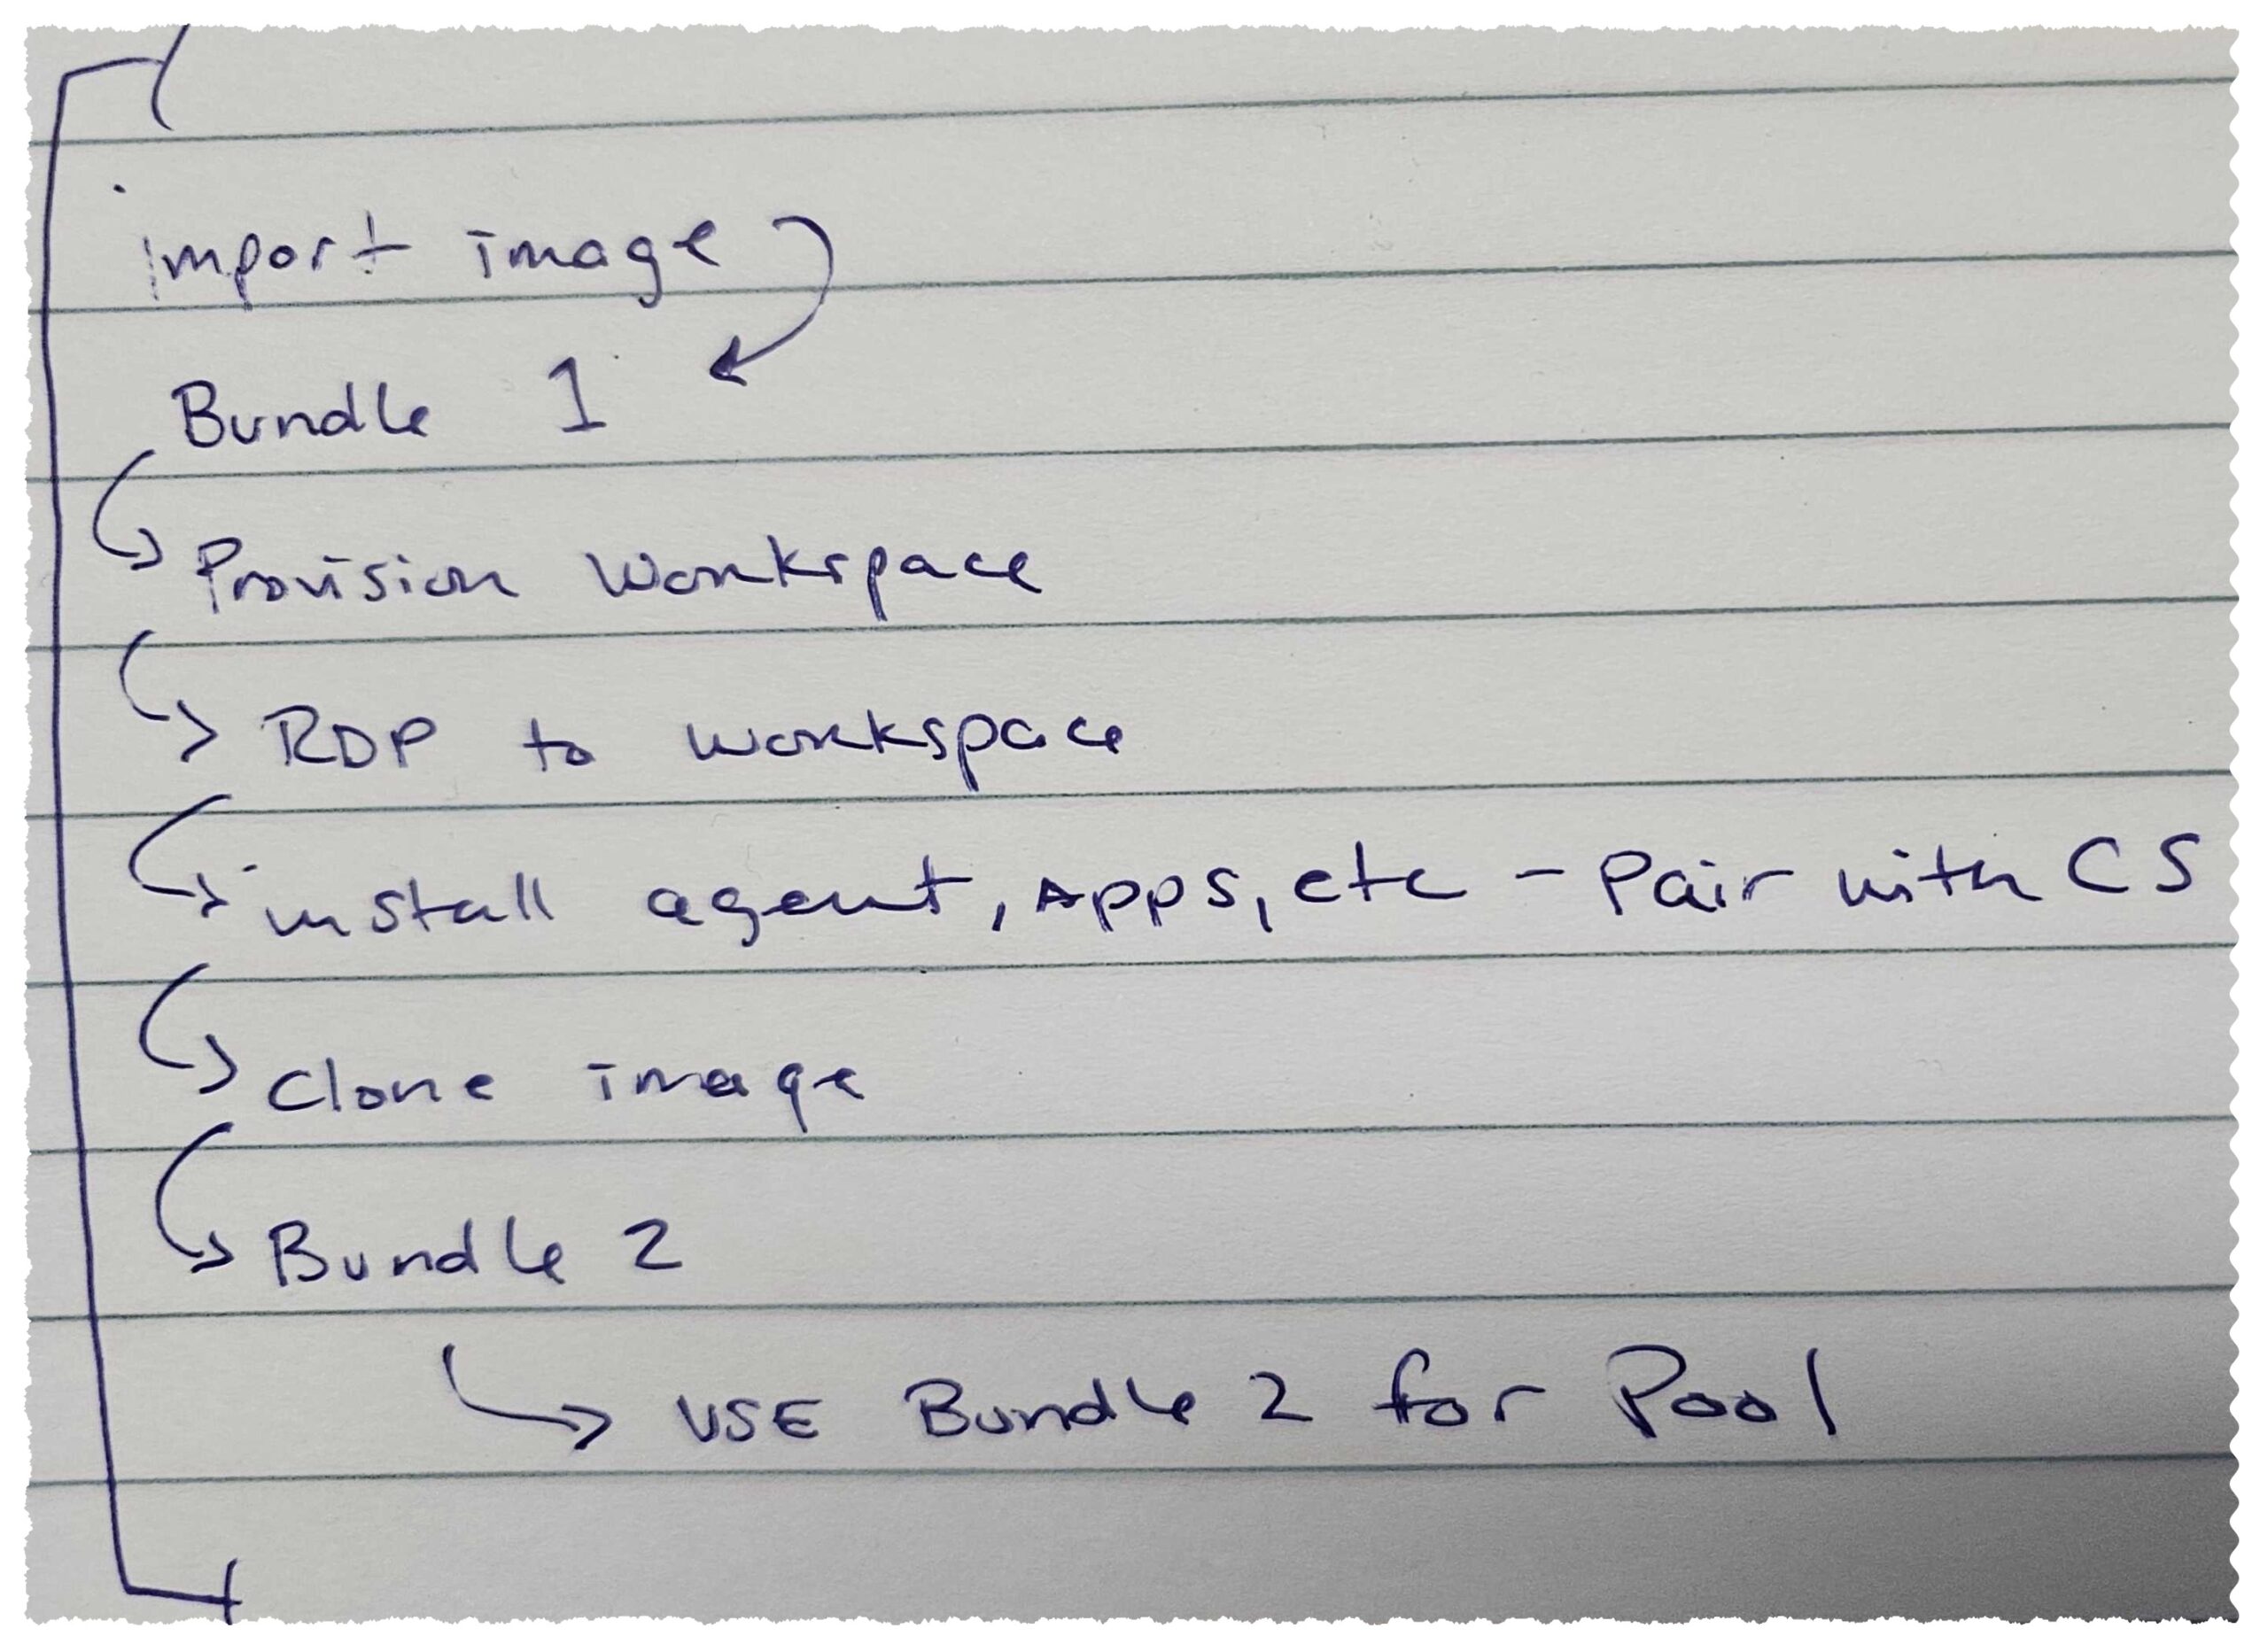 import image
Bundle 1
Provision Workspace
RDP to workspace
install agent, Apps, etc - Pair with CS
Clone image
Bundle 2
USE Bundle 2 for Pool